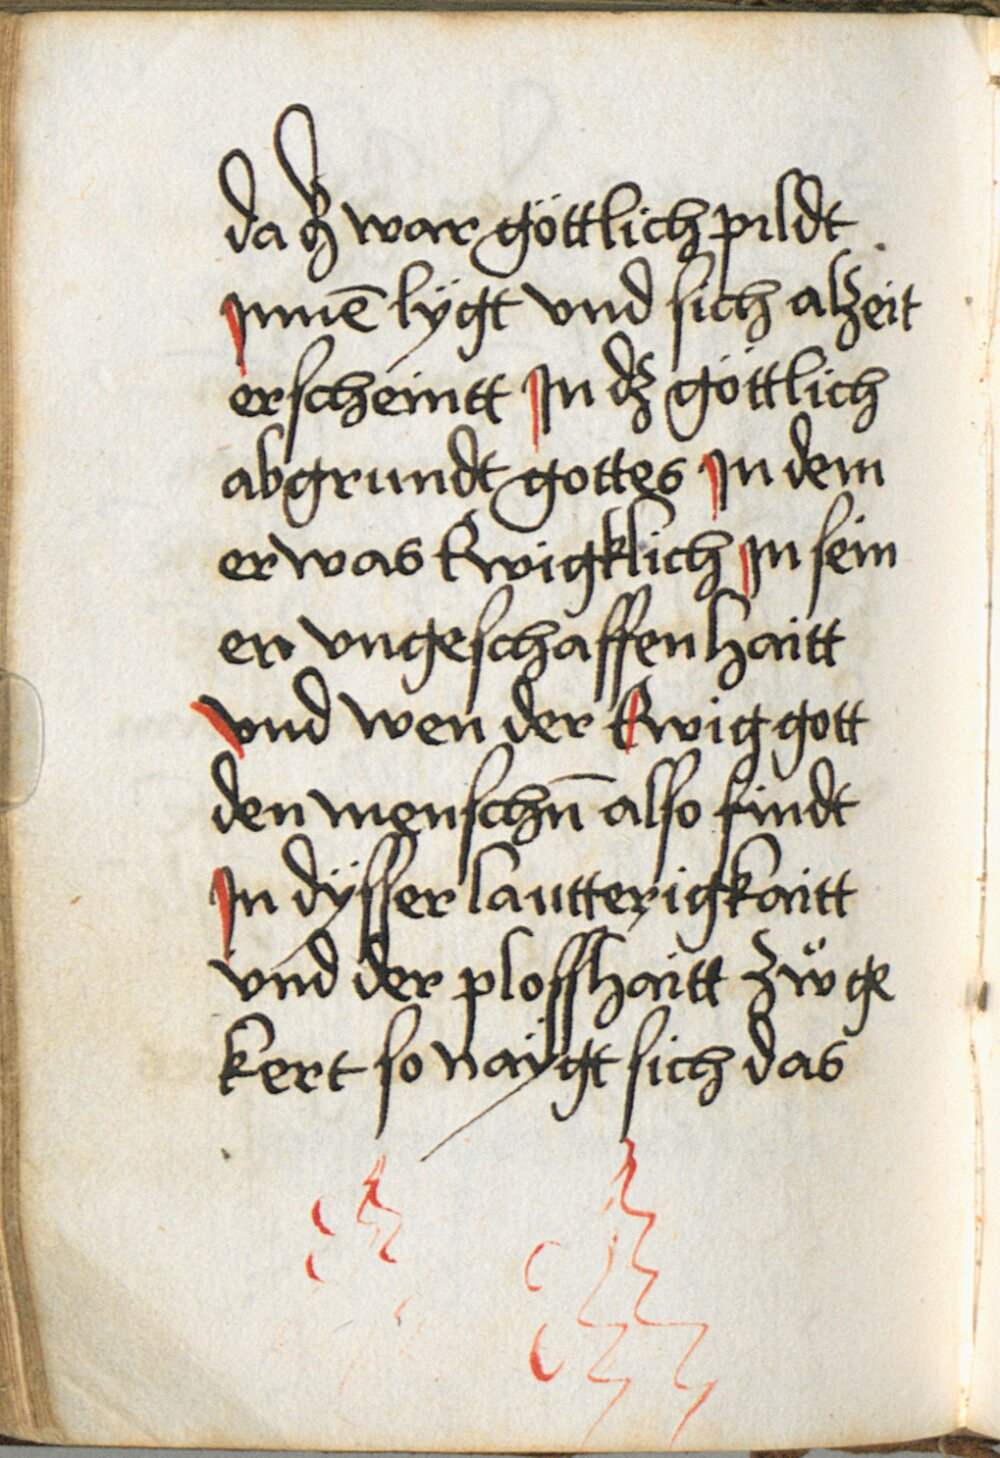 da dz war göttlich pildt
Innē lÿgt vnd sich alzeit
erscheintt In dz göttlich
abgrundt gottes In dem
er was Ewigklich In sein
er vngeschaffenhaitt
vnd wen der Ewig gott
den menschn̄ also findt
In dÿsser lautterigkaitt
vnd der plosshaitt zw̎ ge
kert so naÿgt sich das